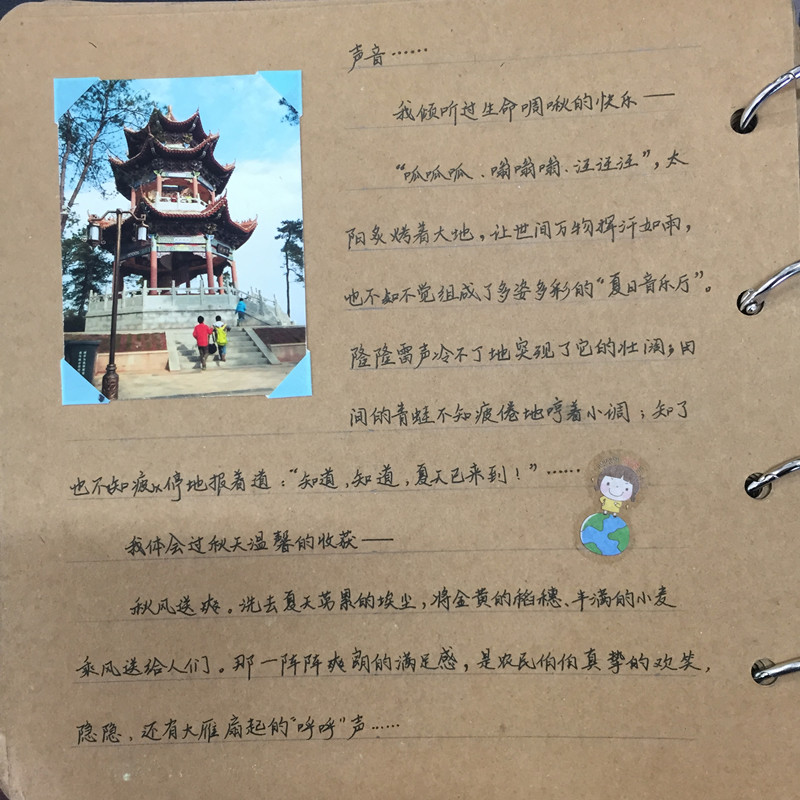 声音……
我倾听过生命啁啾的快乐——
“呱呱呱、嗡嗡嗡、汪汪汪”，太
阳炙烤着大地，让世间万物挥汗如雨，
也不知不觉组成了多姿多彩的“夏日音乐厅”。
隆隆雷声冷不丁地实现了它的壮阔；田
间的青蛙不知疲倦地哼着小调；知了
也不知疲停地报着道：“知道，知道，夏天已来到！”……
我体会过秋天温馨的收获——
秋风送爽。洗去夏天劳累的埃尘，将金黄的稻穗、丰满的小麦
乘风送给人们。那一阵阵爽朗的满足感，是农民伯伯真挚的欢笑，
隐隐、还有大雁扇起的“呼呼”声……